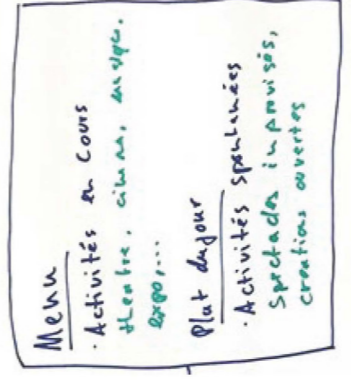 Menu
· Activités en cours
theatre, cinéma, musique.
expo,...
Plat du jour
· Activités spontanées
Spectacles improvisés,
creations ouvertes